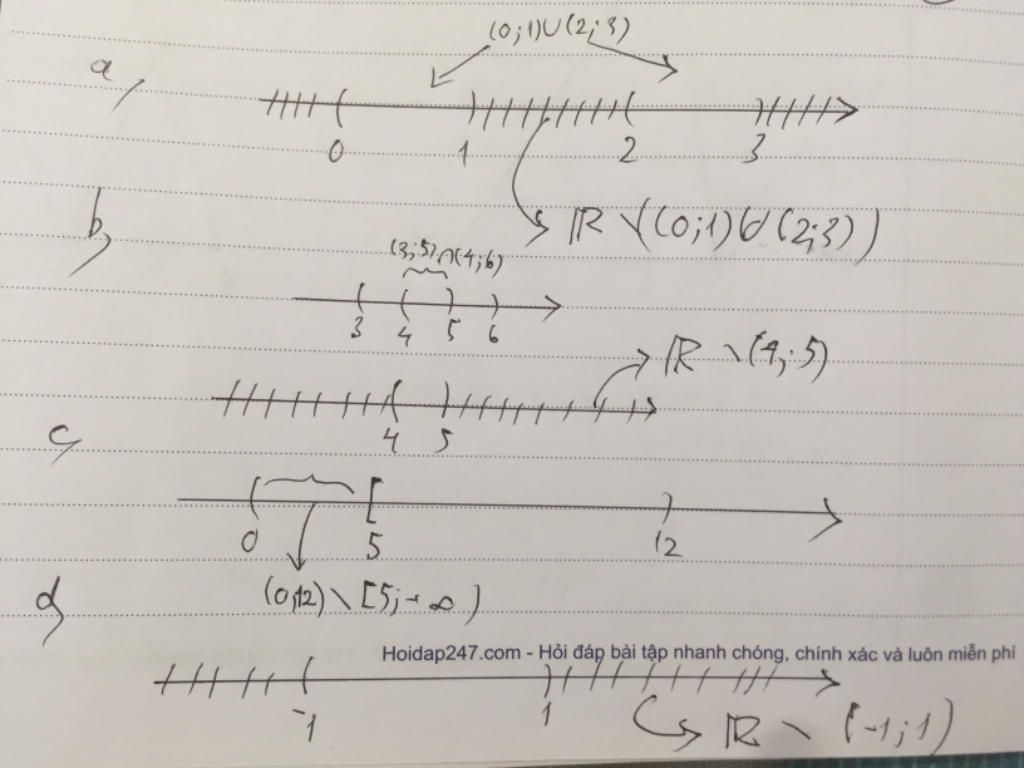 (0;1)∪(2;3)
a,
0 1 2 3
ℝ \ ((0;1)∪(2;3))
b,
(3;5)∩(4;6)
3 4 5 6
ℝ \ (4;5)
4 5
c,
0 5 12
(0;12) \ [5;+∞)
d,
Hoidap247.com - Hỏi đáp bài tập nhanh chóng, chính xác và luôn miễn phí
-1 1
ℝ \ (-1;1)